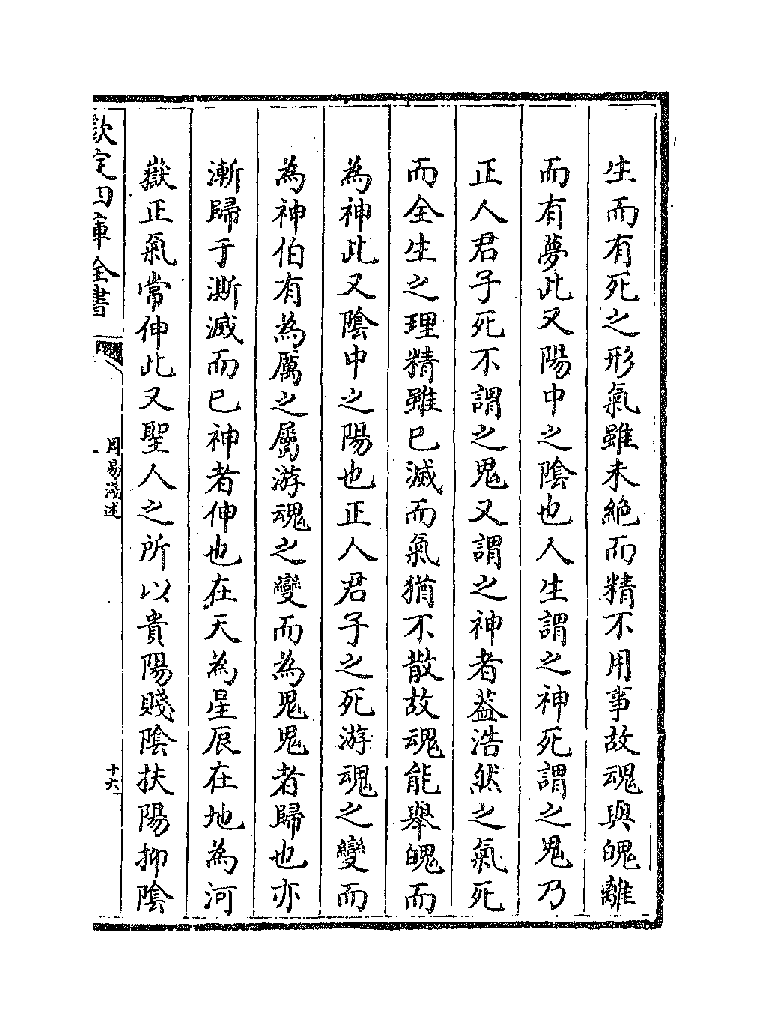 生而有死之形氣雖未絶而精不用事故魂與魄離
而有夢此又陽中之陰也人生謂之神死謂之鬼乃
正人君子死不謂之鬼又謂之神者葢浩然之氣死
而全生之理精雖已滅而氣猶不散故魂能舉魄而
為神此又陰中之陽也正人君子之死游魂之變而
為神伯有為厲之屬游魂之變而為鬼鬼者歸也亦
漸歸于澌滅而已神者伸也在天為星辰在地為河
嶽正氣常伸此又聖人之所以貴陽賤陰扶陽抑陰
欽定四庫全書
周易淺述
十六